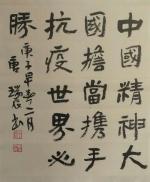 中國精神大
國擔當攜手
抗疫世界必
勝 庚子早春二月